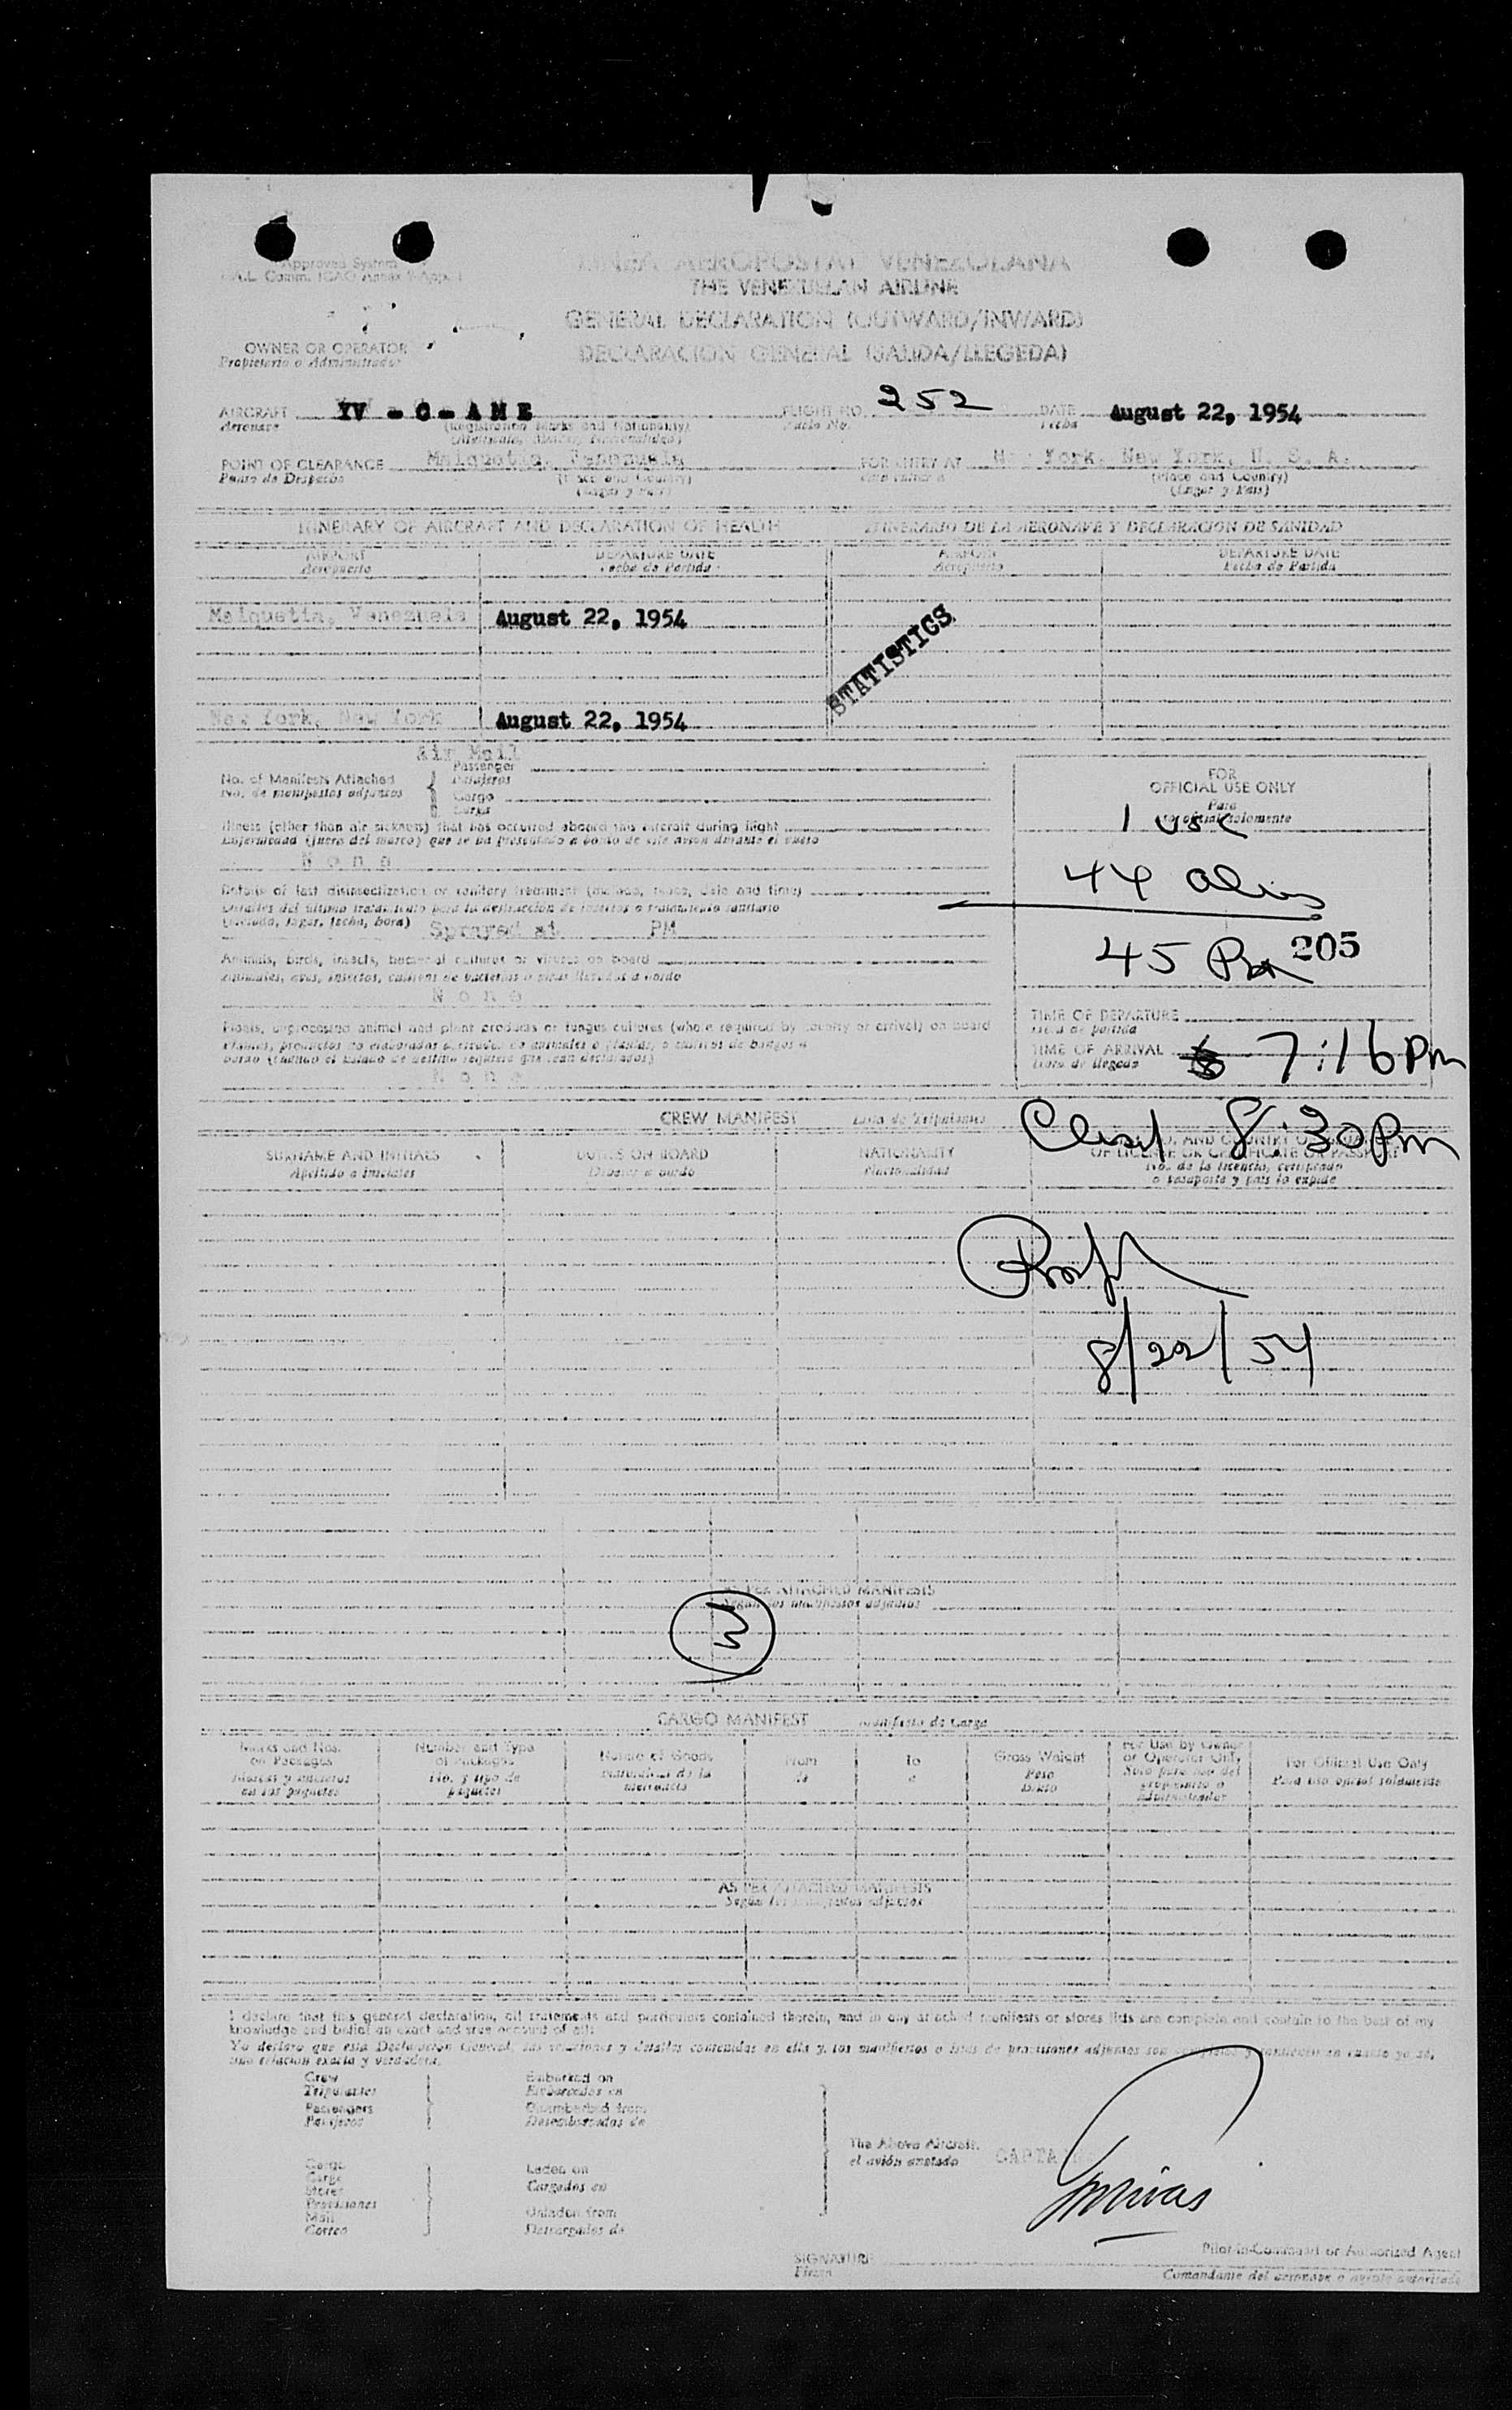 Approved System
LINEA AEROPOSTAL VENEZOLANA
THE VENEZUELAN AIRLINE
GENERAL DECLARATION (OUTWARD/INWARD)
DECLARACION GENERAL (SALIDA/LLEGEDA)
OWNER OR OPERATOR
Propietario o Administrador
AIRCRAFT YV - C - AME FLIGHT NO. 252 DATE August 22, 1954
Aeronave (Registration Marks and Nationality) Vuelo No. Fecha
POINT OF CLEARANCE Maiquetia, Venezuela FOR ENTRY AT New York, New York, U. S. A.
Punto de Despacho (Place and Country) (Place and Country)
(Lugar y Pais) (Lugar y Pais)
ITINERARY OF AIRCRAFT AND DECLARATION OF HEALTH ITINERARIO DE LA AERONAVE Y DECLARACION DE SANIDAD
AIRPORT DEPARTURE DATE AIRPORT DEPARTURE DATE
Aeropuerto Fecha de Partida Aeropuerto Fecha de Partida
Maiquetia, Venezuela August 22, 1954
STATISTICS
New York, New York August 22, 1954
Air Mail
No. of Manifests Attached Passenger
No. de manifiestos adjuntos Pasajeros
Cargo
Carga
FOR
OFFICIAL USE ONLY
Para
1 USC
44 Aliens
45 Pax 205
Illness (other than air sickness) that has occurred aboard this aircraft during flight
Enfermedad (fuera del mareo) que se ha presentado a bordo de este avion durante el vuelo
None
Details of last disinsectization or sanitary treatment (method, place, date and time)
Detalles del último tratamiento para la destrucción de insectos o tratamiento sanitario
(método, lugar, fecha, hora) Sprayed at PM
Animals, birds, insects, bacterial cultures or viruses on board
Animales, aves, insectos, cultivos de bacterias o virus llevados a bordo
None
Plants, unprocessed animal and plant products or fungus cultures (where required by country of arrival) on board
None
TIME OF DEPARTURE
Hora de partida
TIME OF ARRIVAL 7:16 PM
Hora de llegada
CREW MANIFEST Lista de Tripulantes
8:30 PM
SURNAME AND INITIALS DUTIES ON BOARD NATIONALITY
OF LICENSE OR CERTIFICATE OR PASSPORT
Apellido e iniciales Nacionalidad
No. de la licencia, certificado
o pasaporte y pais lo expide
8/22/54
AS PER ATTACHED MANIFESTS
Según los manifiestos adjuntos
3
CARGO MANIFEST Manifiesto de Carga
Marks and Nos. Number and Type Nature of Goods From To Gross Weight For Use by Owner For Official Use Only
on Packages of Packages or Operator Only
Marcas y números No. y tipo de Naturaleza de la de a Peso Solo para uso del Para uso oficial solamente
en los paquetes paquetes mercancia Bruto propietario o
administrador
AS PER ATTACHED MANIFESTS
Según los manifiestos adjuntos
I declare that this general declaration, all statements and particulars contained therein, and in any attached manifests or stores lists are complete and contain to the best of my
knowledge and belief an exact and true account of all:
una relacion exacta y verdadera.
Crew Embarked on
Tripulantes Embarcados en
Passengers Disembarked from
Pasajeros Desembarcados de
The Above Aircraft.
el avión anotado CAPTA
Cargo Laden on
Carga Cargados en
Stores
Provisiones
Mail Unladen from
Correo Descargados de
Pilot-in-Command or Authorized Agent
SIGNATURE
Firma
Comandante del aeronave o agente autorizado